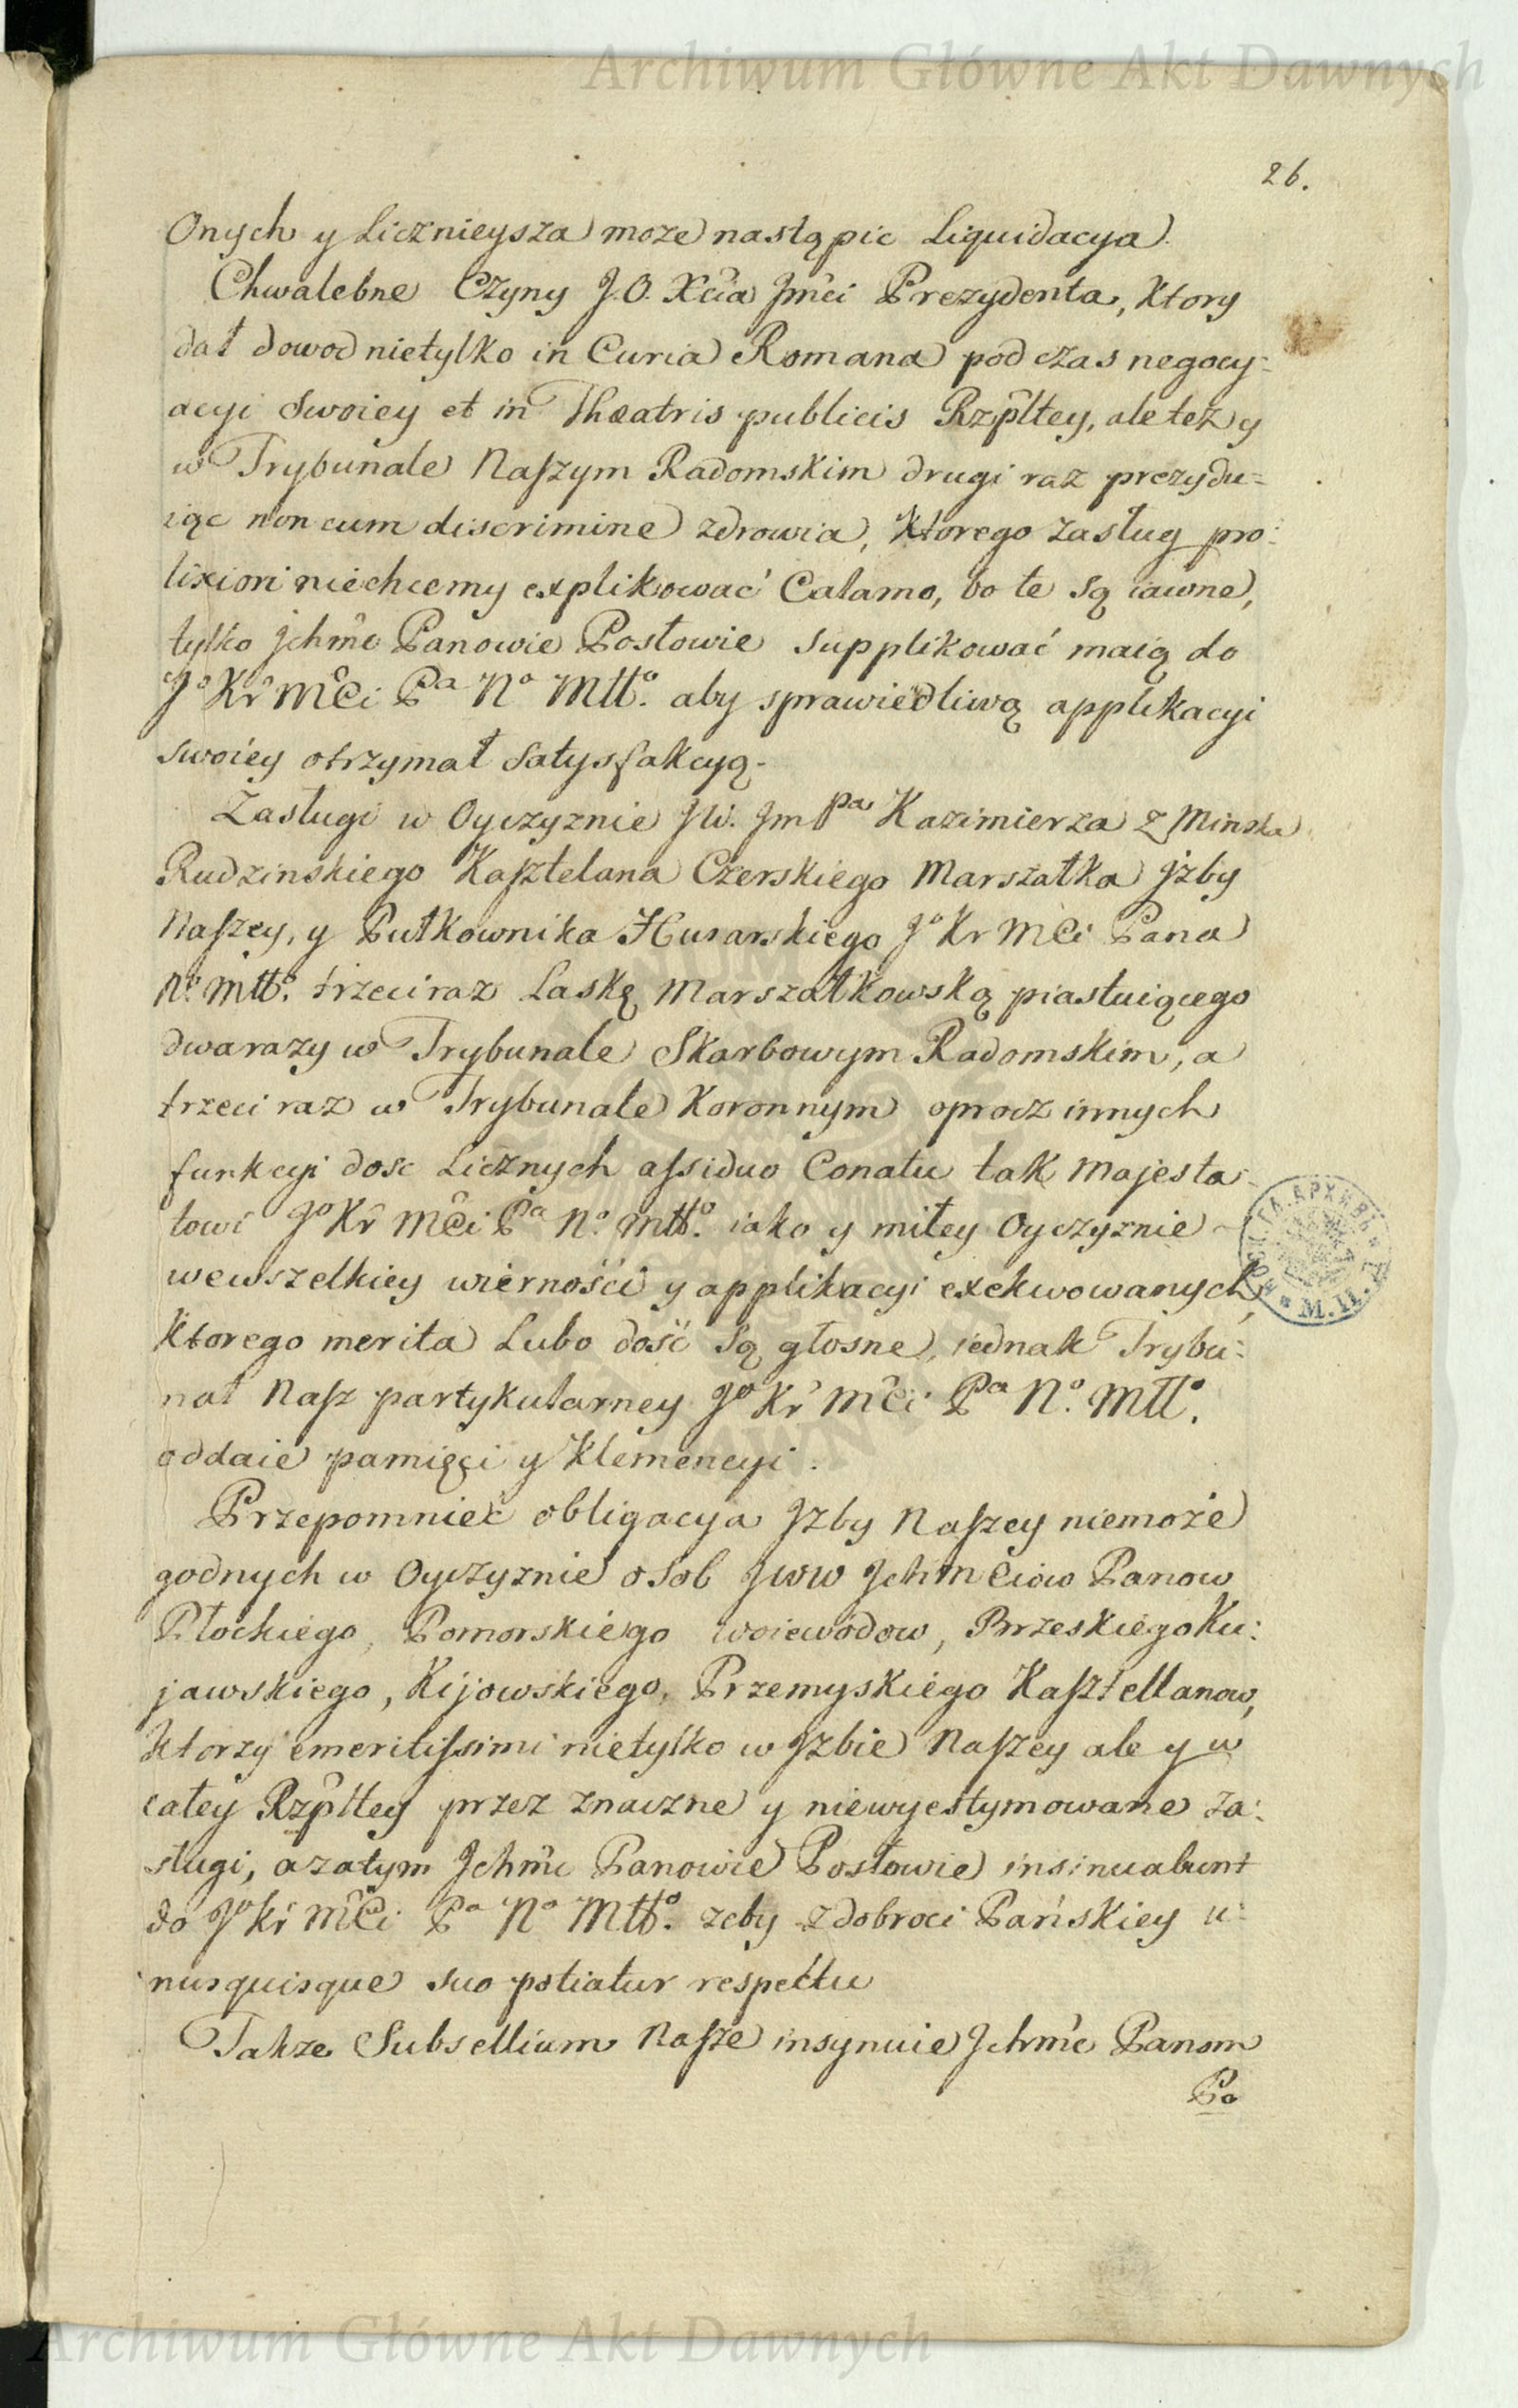 Archiwum Główne Akt Dawnych
26.
Onych y Licznieysza może nastąpic Liquidacya.
Chwalebne Czyny J.O. Xcia Jmci Prezydenta, Ktory
dał dowod nietylko in Curia Romana pod czas negocy:
acyi Swoiey et in Theatris publicis Rzpltey, ale też y
w Trybunale Naszym Radomskim drugi raz prezydu=
iąc non cum discrimine zdrowia, Ktorego zasług pro:
lixiori niechcemy explikować Calamo, bo te są iawne,
tylko Jchmc Panowie Posłowie supplikować maią do
Jo Kr Mci Pa No Mttο. aby sprawiedliwą applikacyi
swoiey otrzymał satysfakcyą.
Zasługi w Oyczyznie JW. Jm Pa Kazimierza z Minska
Rudzinskiego Kasztelana Czerskiego Marszałka Jzby
Naszey, y Pułkownika Husarskiego Jo Kr Mci Pana
No Mtto. trzeci raz Laskę Marszałkowską piastuiącego
dwa razy w Trybunale Skarbowym Radomskim, a
trzeci raz w Trybunale Koronnym oprocz innych
funkcyi dosc Licznych assiduo Conatu tak Majesta:
towi Jo Kr Mci Pa No. Mtto. iako y miłey Oyczyznie
wewszelkiey wierności y applikacyi exekwowanych,
Ktorego merita Lubo dość są głosne, iednak Trybu:
nał Nasz partykularney Jo Kr Mci Pa No. Mtto.
oddaie pamięci y Klemencyi.
Przepomnieć obligacya Jzby Naszey niemoże
godnych w Oyczyznie osob JWW Jchmciow Panow
Płockiego, Pomorskiego woiewodow, Brzeskiego Ku:
jawskiego, Kijowskiego, Przemyskiego Kasztellanow,
Ktorzy emeritissimi nietylko w Jzbie Naszey ale y w
całey Rzpltey przez znaczne y niewyestymowane za:
sługi, azatym Jchmc Panowie Posłowie insinuabunt
do Jo Kr Mci Pa No Mtto. zeby z dobroci Pańskiey u:
nusquisque suo potiatur respectu
Także Subsellium Nasze insynuie Jchmc Panom
Po
Archiwum Główne Akt Dawnych